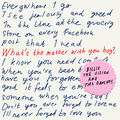 Everywhere I go
I see jealousy and greed
In the line at the grocery
store on every Facebook
that I read
What's the matter with you boy?
I know you need
when you've been
have you forgotten
good it feels to
someone when you're
Don't you ever forget to love me
I'll never forget to love you
BILLIE
THE VISION
AND
THE DANCERS